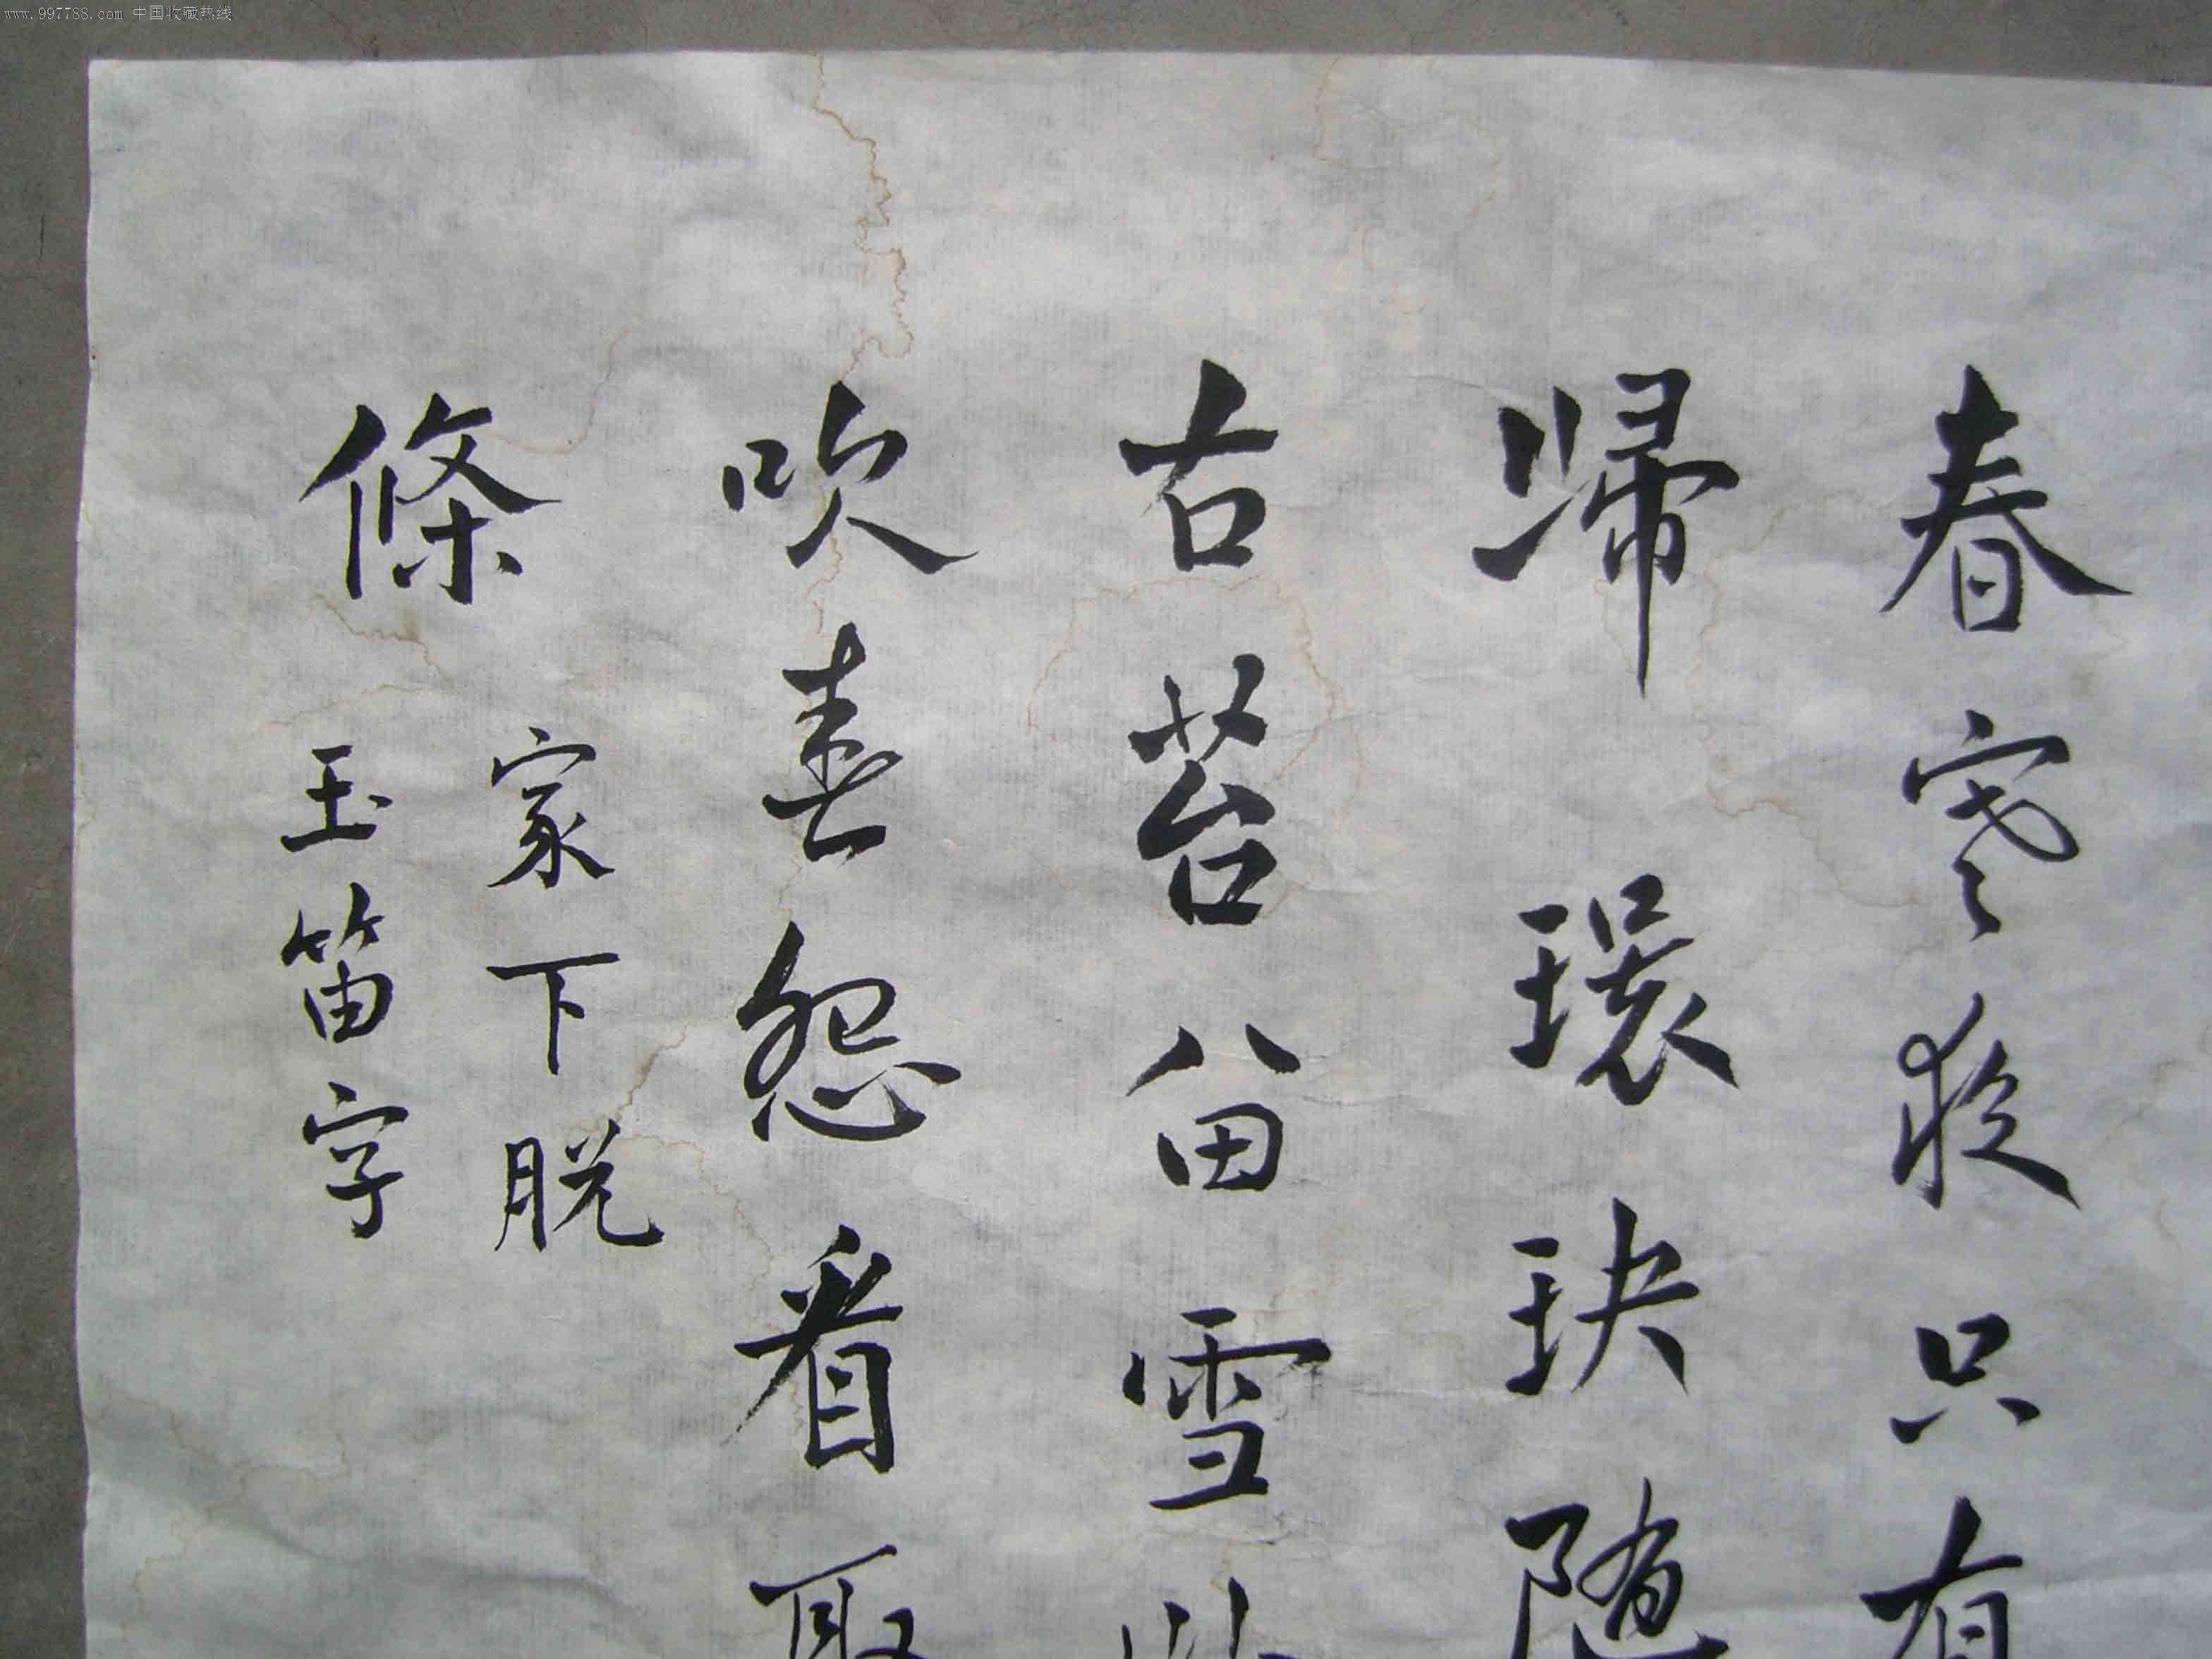 www.997788.com 中国收藏热线
春寒只有
歸環玦隨
古苔留雪
吹春怨看取
條
家下脱
玉笛字